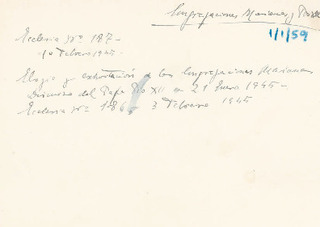 Congregaciones Marianas y
1/1/59
Ecclesia nº 187 -
Febrero
Elogio y exhortación a las Congregaciones Marianas
Discurso del Papa Pío XII en 21 Enero 1945 -
Ecclesia nº 186 - 3 Febrero 1945